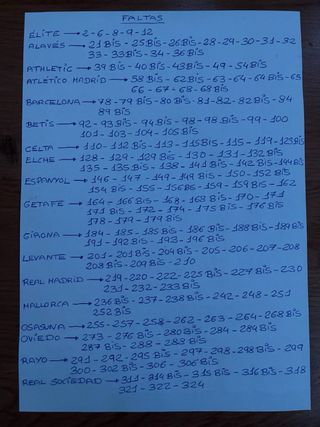 FALTAS
ÉLITE → 2-6-8-9-12
ALAVÉS → 21 BIS - 25 BIS - 26 BIS - 28 - 29 - 30 - 31 - 32
33 - 33 BIS - 34 - 36 BIS
ATHLETIC → 39 BIS - 40 BIS - 43 BIS - 49 - 54 BIS
ATLÉTICO MADRID → 58 BIS - 62 BIS - 63 - 64 - 64 BIS - 65
66 - 67 - 68 - 68 BIS
BARCELONA → 78 - 79 BIS - 80 BIS - 81 - 82 - 82 BIS - 84
89 BIS
BETIS → 92 - 93 BIS - 94 BIS - 98 - 98 BIS - 99 - 100
101 - 103 - 104 - 105 BIS
CELTA → 110 - 112 BIS - 113 - 115 BIS - 115 - 119 - 125 BIS
ELCHE → 128 - 129 - 129 BIS - 130 - 131 - 132 BIS
135 - 135 BIS - 138 - 141 BIS - 142 BIS - 144 BIS
ESPANYOL → 146 - 147 - 149 - 149 BIS - 150 - 152 BIS
154 BIS - 155 - 156 BIS - 159 - 159 BIS - 162
GETAFE → 164 - 166 BIS - 168 - 168 BIS - 170 - 171
171 BIS - 172 - 174 - 175 BIS - 176 BIS
178 - 179 - 179 BIS
GIRONA → 184 - 185 - 185 BIS - 186 BIS - 188 BIS - 189 BIS
191 - 192 BIS - 193 - 196 BIS
LEVANTE → 201 - 201 BIS - 204 BIS - 205 - 206 - 207 - 208
208 BIS - 209 BIS - 210
REAL MADRID → 219 - 220 - 222 - 225 BIS - 227 BIS - 230
231 - 232 - 233 BIS
MALLORCA → 236 BIS - 237 - 238 BIS - 242 - 248 - 251
252 BIS
OSASUNA → 255 - 257 - 258 - 262 - 263 - 264 - 268 BIS
OVIEDO → 273 - 276 BIS - 280 BIS - 284 - 284 BIS
287 BIS - 288 - 288 BIS
RAYO → 291 - 292 - 295 BIS - 297 - 298 - 298 BIS - 299
300 - 302 BIS - 306 - 306 BIS
REAL SOCIEDAD → 311 - 314 BIS - 315 BIS - 316 BIS - 318
321 - 322 - 324